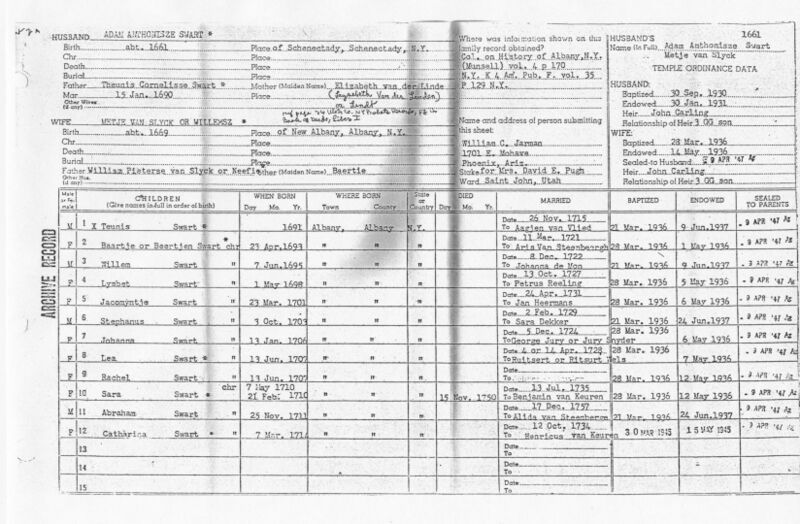 HUSBAND ADAM ANTHONISZE SWART *
Birth abt. 1661 Place of Schenectady, Schenectady, N.Y.
Chr Place
Death Place
Burial Place
Father Theunis Cornelisse Swart * Mother (Maiden Name) Elizabeth van der Linde
Mar 15 Jan. 1690 Place (Lysabeth Van der Linden)
Other Wives (if any) or Landt
WIFE METJE VAN SLYCK OR WILLEMSZ *
Birth abt. 1669 Place of New Albany, Albany, N.Y.
Chr Place
Death Place
Burial Place
Father William Pieterse van Slyck or Neefie Mother (Maiden Name) Baertie
Other Hus. (if any)
Where was information shown on this
family record obtained?
Col. on History of Albany, N.Y.
(Munsell) vol. 4 p 170
N.Y. K 4 Am. Pub. F. vol. 35
P 129 N.Y.
Name and address of person submitting
this sheet:
William C. Jarman
1701 E. Mohave
Phoenix, Ariz.
Stake for Mrs. David E. Pugh
Ward Saint John, Utah
1661
HUSBAND'S Name (in Full) Adam Anthonisze Swart
Metje van Slyck
TEMPLE ORDINANCE DATA
HUSBAND:
Baptized 30 Sep. 1930
Endowed 30 Jan. 1931
Heir: John Carling
Relationship of Heir 3 GG son
WIFE:
Baptized 28 Mar. 1936
Endowed 14 May 1936
Sealed to Husband 9 APR '47 Az
Heir: John Carling
Relationship of Heir 3 GG son
ARCHIVE RECORD
Male or Female CHILDREN (Give names in full in order of birth) WHEN BORN Day Mo. Yr. WHERE BORN Town County State or Country DIED Day Mo. Yr. MARRIED BAPTIZED ENDOWED SEALED TO PARENTS
M 1 X Teunis Swart * 1691 Albany, Albany N.Y. Date 26 Nov. 1715 To Aagien van Vlied 21 Mar. 1936 9 Jun. 1937 - 9 APR '47 Az
F 2 Baartje or Beertjen Swart * chr 23 Apr. 1693 " " " Date 11 Mar. 1721 To Aris Van Steenbergh 28 Mar. 1936 1 May 1936 - 9 APR '47 Az
M 3 Willem Swart " 7 Jun. 1695 " " " Date 8 Dec. 1722 To Johanna de Mon 21 Mar. 1936 9 Jun. 1937 - 9 APR '47 Az
F 4 Lysbet Swart " 1 May 1698 " " " Date 13 Oct. 1727 To Petrus Reeling 28 Mar. 1936 5 May 1936 - 9 APR '47 Az
F 5 Jacomyntie Swart " 23 Mar. 1701 " " " Date 24 Apr. 1731 To Jan Heermans 28 Mar. 1936 6 May 1936 - 9 APR '47 Az
M 6 Stephanus Swart " 3 Oct. 1703 " " " Date 2 Feb. 1729 To Sara Dekker 21 Mar. 1936 24 Jun. 1937 - 9 APR '47 Az
F 7 Johanna Swart " 13 Jan. 1706 " " " Date 5 Dec. 1724 To George Jury or Jury Snyder 28 Mar. 1936 6 May 1936 - 9 APR '47 Az
F 8 Lea Swart * " 13 Jun. 1707 " " " Date 4 or 14 Apr. 1728 To Rutsert or Ritsurt Wels 28 Mar. 1936 7 May 1936 - 9 APR '47 Az
F 9 Rachel Swart " 13 Jun. 1707 " " " Date To 28 Mar. 1936 12 May 1936 - 9 APR '47 Az
F 10 Sara Swart * chr 7 May 1710 21 Feb. 1710 " " " 15 Nov. 1750 Date 13 Jul. 1735 To Benjamin van Keuren 28 Mar. 1936 12 May 1936 - 9 APR '47 Az
M 11 Abraham Swart " 25 Nov. 1711 " " " Date 17 Dec. 1757 To Alida van Steenbergh 21 Mar. 1936 24 Jun. 1937 - 9 APR '47 Az
F 12 Catharina Swart * " 7 Mar. 1714 " " " Date 12 Oct. 1734 To Henricus van Keuren 30 MAR 1945 15 MAY 1945 - 9 APR '47 Az
13 Date To
14 Date To
15 Date To